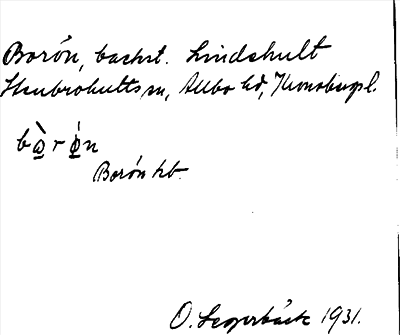 Borón, backst. Lindshult
Stenbrohults sn, Allbo hd, Kronobergs l.
bò̲rȯ́n
Borón kb.
O. Segerbäck 1931.